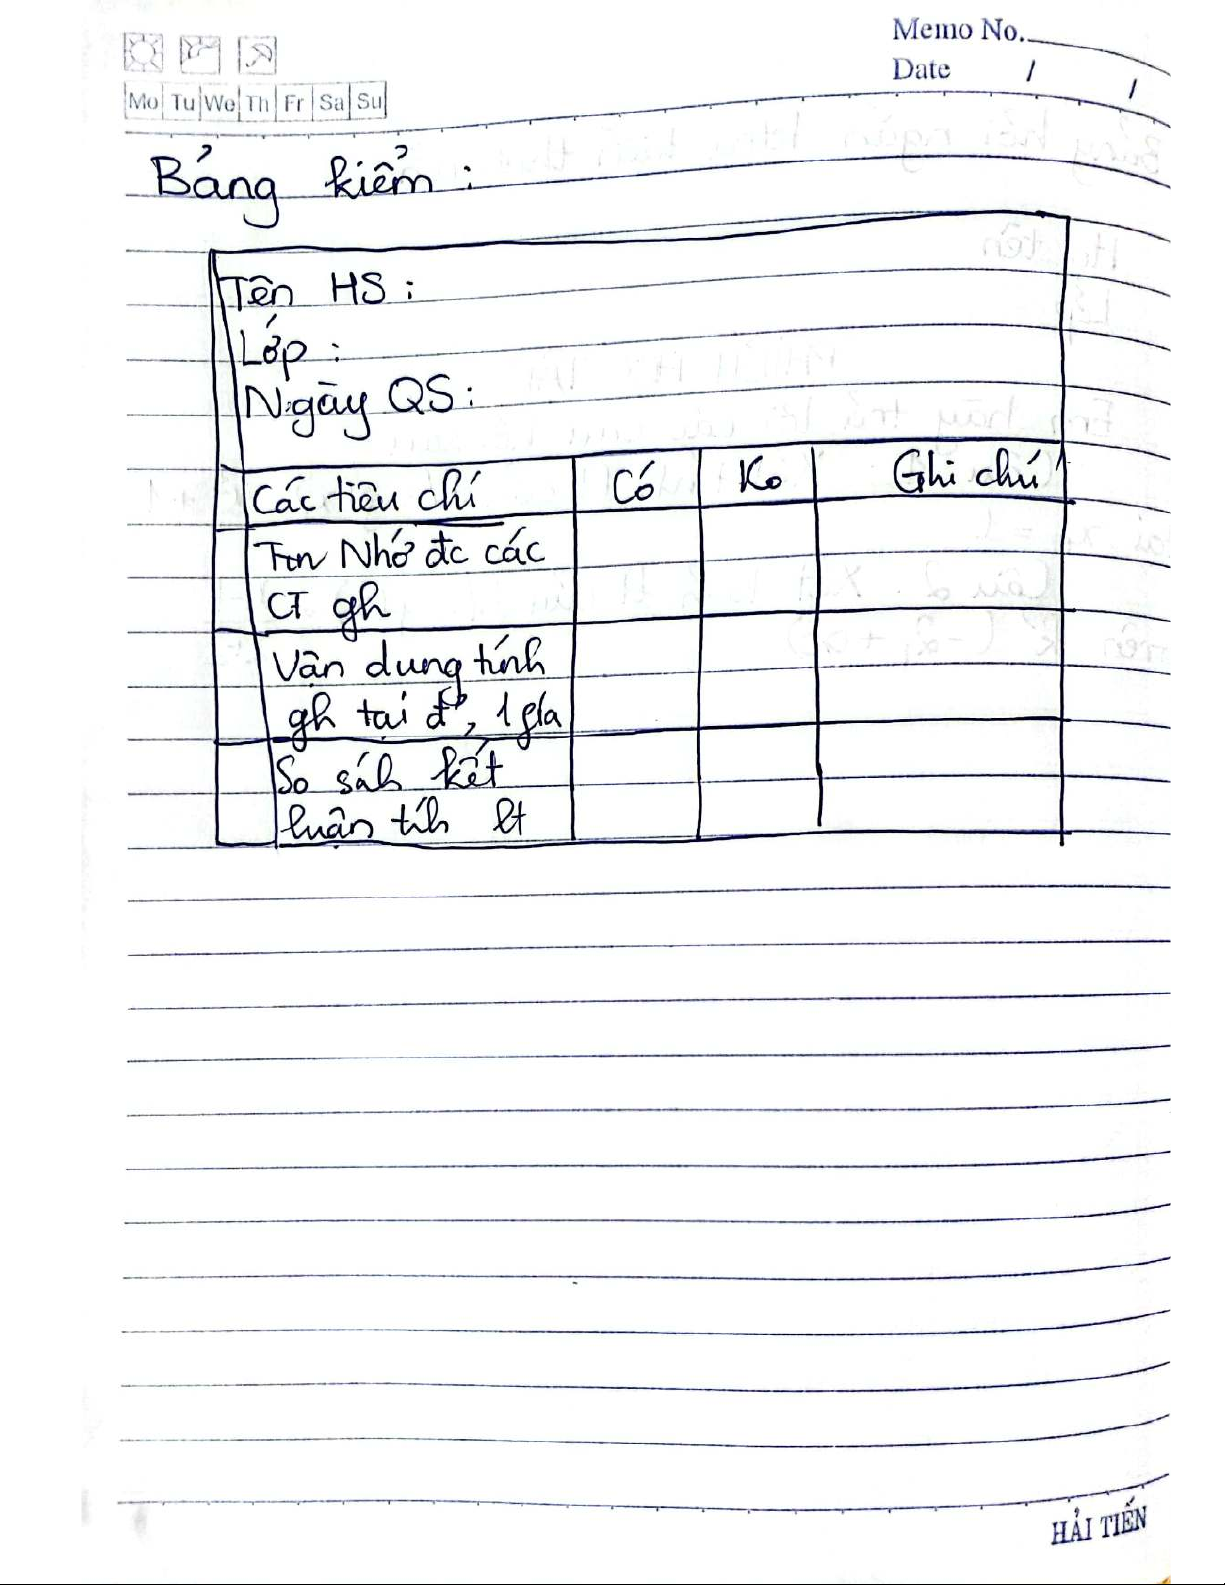 Memo No.
Date / /
Mo Tu We Th Fr Sa Su
Bảng kiểm :
Tên HS :
Lớp :
Ngày QS :
Các tiêu chí Có Ko Ghi chú
Nhớ đc các
CT gh
Vận dụng tính
gh tại đ', 1 phía
So sáh kết
luận tíh lt
HẢI TIẾN